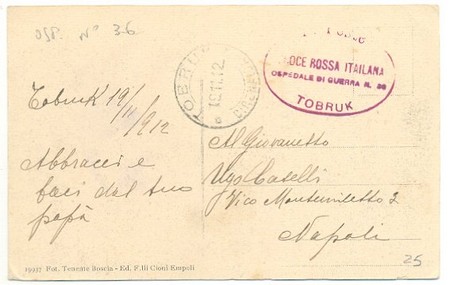 OSP. N° 36
CROCE ROSSA ITALIANA
OSPEDALE DI GUERRA N. 36
TOBRUK
TOBRUK
19.11.12
Tobruk 19/11/912
Abbracci e
baci dal tuo
papà
Al Giovanetto
Ugo Caselli
Vico Montemiletto 2
Napoli
19937 Fot. Tenente Boscia - Ed. F.lli Cioni Empoli
25